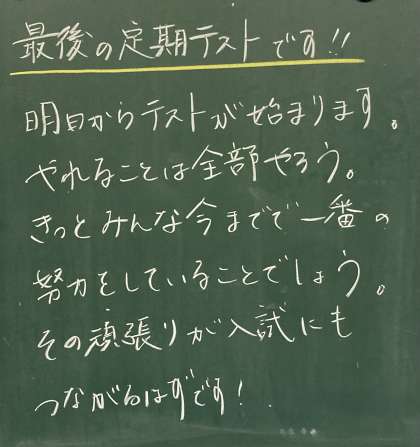 最後の定期テストです!!
明日からテストが始まります。
やれることは全部やろう。
きっとみんな今までで一番の
努力をしていることでしょう。
その頑張りが入試にも
つながるはずです!